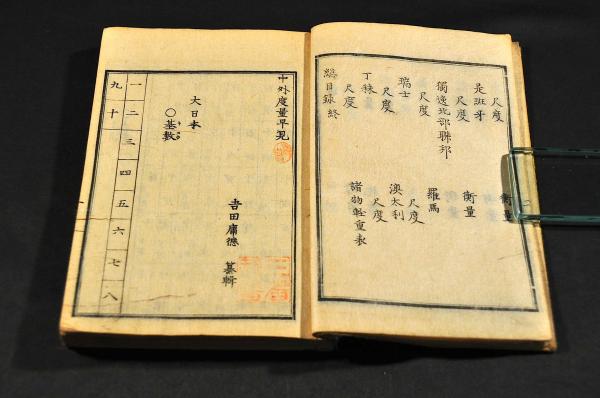 尺度 衡量
是班牙
尺度 衡量
獨逸北部聯邦
尺度 羅馬
瑞士 尺度
尺度 澳太利
丁抹 尺度
尺度 諸物軽重表
総目録終
中外度量早見
吉田庸徳 纂輯
大日本
○基数
一 二 三 四 五 六 七 八
九 十